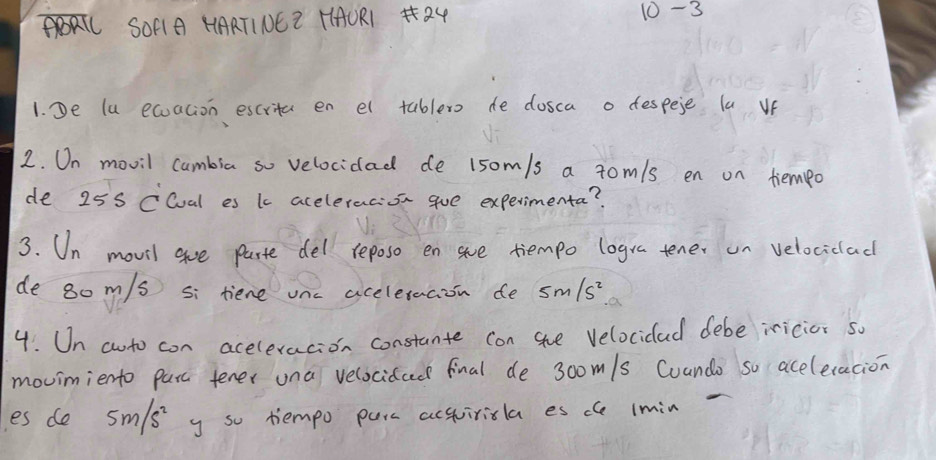 ABRIL SOFIA MARTINEZ MAURI #24 10-3
1. De la ecuación escrita en el tablero de dusca o despeje la Vf
2. Un movil cambia su velocidad de 150m/s a 70m/s en un tiempo
de 25s ¿Cual es la aceleración que experimenta?
3. Un movil que parte del reposo en que tiempo logra tener un velocidad
de 80 m/s si tiene una aceleración de 5m/s²
4. Un auto con aceleración constante con que velocidad debe iniciar su
movimiento para tener una velocidad final de 300m/s Cuando su aceleración
es de 5m/s² y su tiempo para adquirirla es de 1min